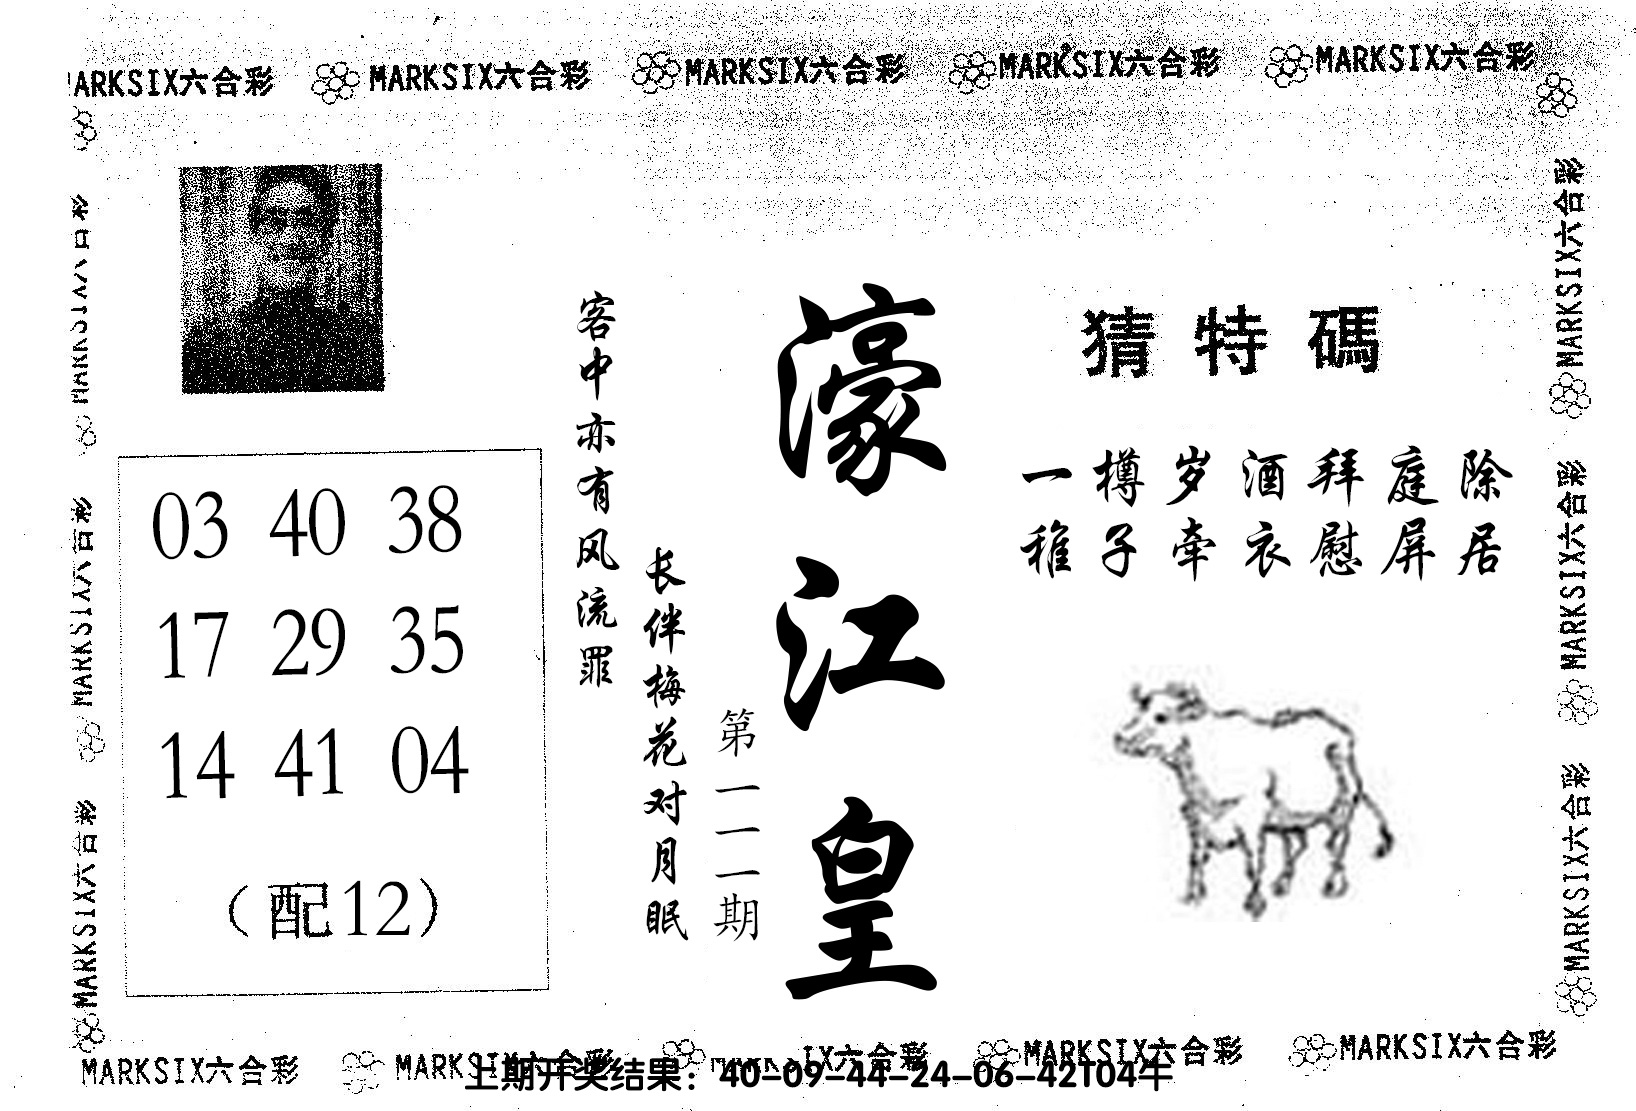 MARKSIX六合彩 MARKSIX六合彩 MARKSIX六合彩 MARKSIX六合彩 MARKSIX六合彩
猜特碼
一樽岁酒拜庭除
稚子牵衣慰屏居
濠江皇
第一一一期
客中亦有风流罪
长伴梅花对月眠
03 40 38
17 29 35
14 41 04
（配12）
MARKSIX六合彩
MARKSIX六合彩
MARKSIX六合彩
MARKSIX六合彩
MARKSIX六合彩
MARKSIX六合彩
MARKSIX六合彩 MARKSIX六合彩 IX六合彩 MARKSIX六合彩 MARKSIX六合彩
上期开奖结果：40-09-44-24-06-42T04牛